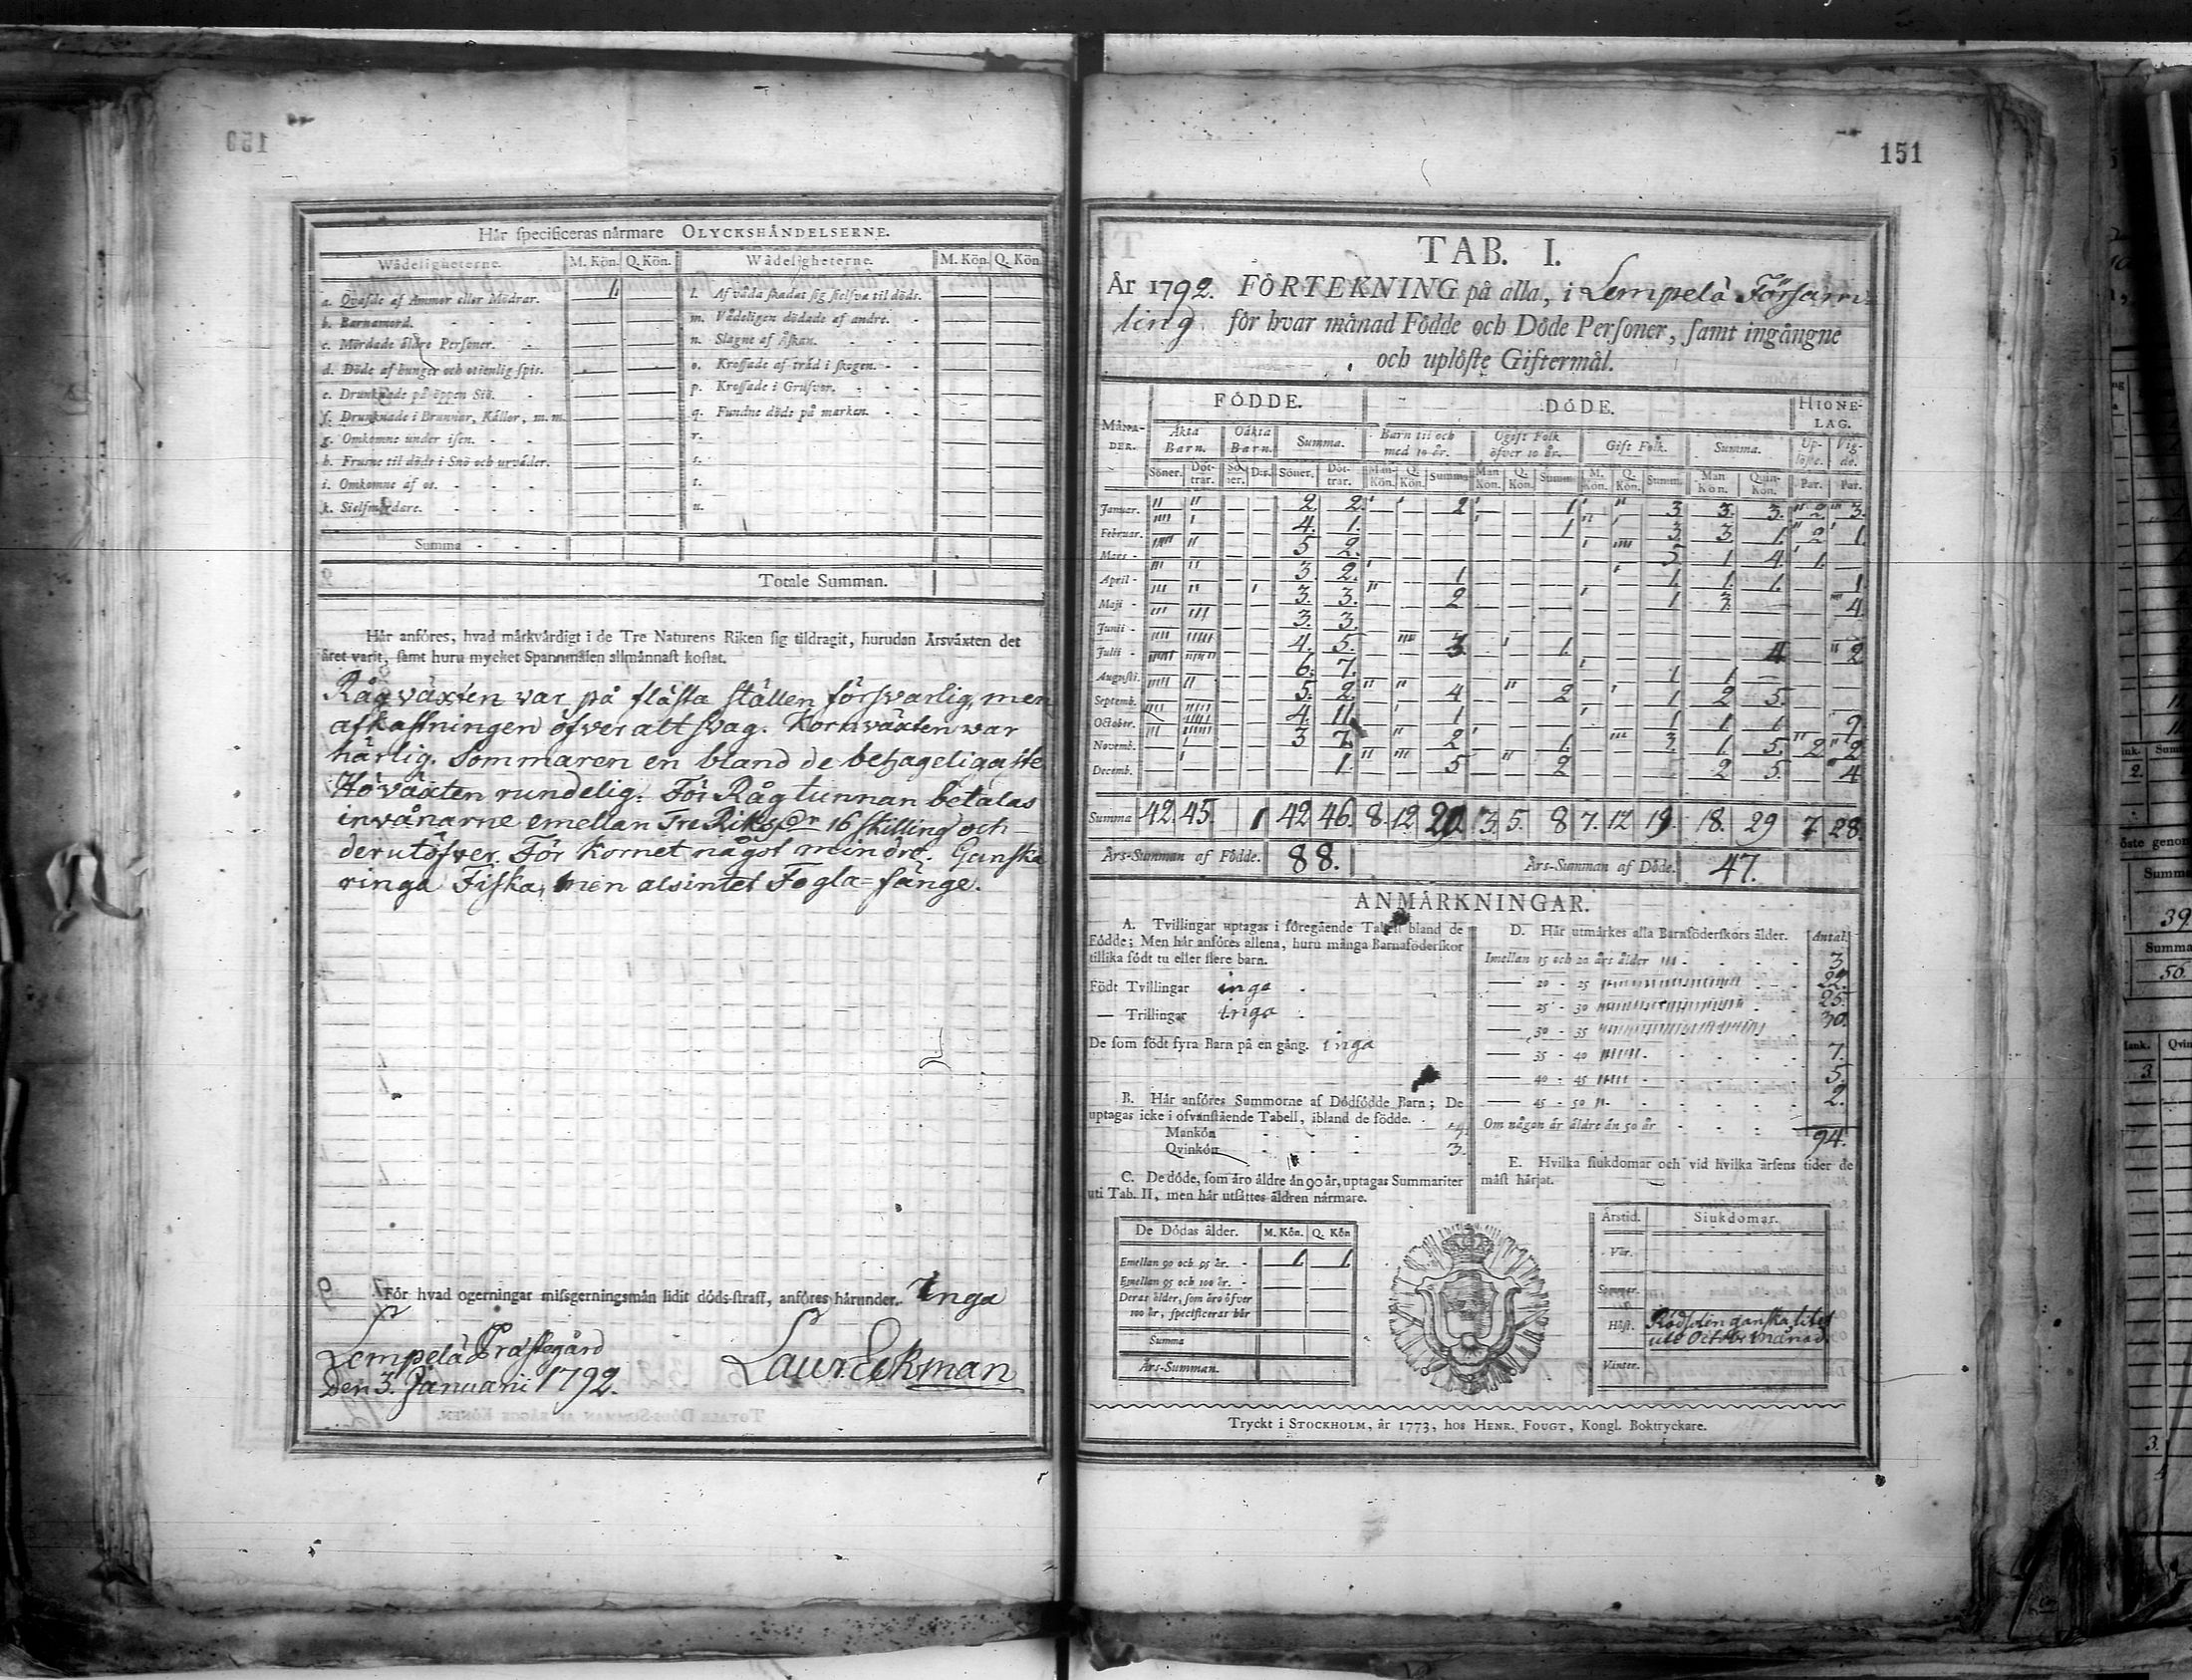 Här specificeras närmare OLYCKSHÄNDELSERNE.
Wådeligheterne. M. Kön. Q. Kön. Wådeligheterne. M. Kön. Q. Kön.
a. Qvafde af Ammor eller Mödrar. 1. l. Af våda skadat sig sielfva til döds.
b. Barnamord. m. Vådeligen dödade af andre.
c. Mördade äldre Personer. n. Slagne af Åskan.
d. Döde af hunger och otienlig spis. o. Krossade af träd i skogen.
e. Drunknade på öppen Siö. p. Krossade i Grufvor.
f. Drunknade i Brunnar, Källor, m. m. q. Fundne döde på marken.
g. Omkomne under isen. r.
h. Frusne til döds i Snö och urväder. s.
i. Omkomne af os. t.
k. Sielfmördare. u.
Summa
Totale Summan.
Här anföres, hvad märkvärdigt i de Tre Naturens Riken sig tildragit, hurudan Årsväxten det
året varit, samt huru mycket Spannmålen allmännast kostat.
Rågväxten var på flästa ställen försvarlig, men
afkastningen öfver alt svag. Kornväxten war
härlig. Sommaren en bland de behageligaste
Höväxten rundelig. För Råg tunnan betalas
invånarne emellan Tre Riksdr 16 skilling och
derutöfver. För Kornet något mindre. Ganska
ringa Fiska, men alsintet Fogla=fänge.
För hvad ogerningar missgerningsmän lidit döds-straff, anföres härunder. Inga
Lempelä Prästegård
Den 3. Januarii 1792.
Laur. Eckman
151
TAB. I.
År 1792. FÖRTEKNING på alla, i Lempelä Försam=
ling för hvar månad Födde och Döde Personer, samt ingångne
och uplöste Giftermål.
FÖDDE. DÖDE. HIONE-
LAG.
MÅNA-
DER. Äkta
Barn. Oäkta
Barn. Summa. Barn til och
med 10 år. Ogift Folk
öfver 10 år. Gift Folk. Summa. Up-
löste. Vig-
de.
Söner. Döt-
trar. Sö-
ner. Döt. Söner. Döt-
trar. Man-
Kön. Q.
Kön. Summa Man
Kön. Q.
Kön. Summa M.
Kön. Q.
Kön. Summ. Man
Kön. Quin-
Kön. Par. Par.
Januar. 2. 2. 2 1 3 3. 3. 2 3.
Februar. 4. 1. 1 3. 3 1 2 1.
Mars 5 2. 5. 1 4. 1.
April 3 2. 1 1. 1. 1. 1
Maji 3. 3. 2 1 3. 4.
Junii 3. 3.
Julii 4. 5. 3 1. 4 2
Augusti. 6. 7. 1 1
Septemb. 5. 2. 4 2 1 2 5.
October. 4. 11. 1 1 1 1 9.
Novemb. 3 7. 2 1. 3. 1. 5. 2 2
Decemb. 1. 5 2 2 5. 4
Summa 42. 45. 1 42 46. 8. 12 20 3. 5. 8 7. 12 19 18. 29 7. 28.
Års-Summan af Födde. 88. Års-Summan af Döde. 47.
ANMÄRKNINGAR.
A. Tvillingar uptagas i föregående Tabell bland de
Födde; Men här anföres allena, huru många Barnaföderskor
tillika födt tu eller flere barn.
Födt Tvillingar inga
— Trillingar inga
De som födt fyra Barn på en gång. inga
B. Här anföres Summorne af Dödfödde Barn; De
uptagas icke i ofvanstående Tabell, ibland de födde.
Mankön
Qvinkön 3.
C. De döde, som äro äldre än 90 år, uptagas Summariter
uti Tab. II, men här utsättes åldren närmare.
De Dödas ålder. M. Kön. Q. Kön
Emellan 90 och 95 år. 1 1
Emellan 95 och 100 år.
Deras ålder, som äro öfver
100 år, specificeras här
Summa
Års-Summan.
D. Här utmärkes alla Barnföderskors ålder. Antal.
Imellan 15 och 20 års ålder 3
20 - 25 22.
25 - 30 25.
30 - 35 30.
35 - 40 7.
40 - 45 5.
45 - 50 2.
Om någon är äldre än 50 år
94.
E. Hvilka siukdomar och vid hvilka årsens tider de
mäst härjat.
Årstid. Siukdomar.
Vår.
Sommar.
Höst. Rödsoten ganska litet
uti October månad.
Vinter.
Tryckt i STOCKHOLM, år 1773, hos HENR. FOUGT, Kongl. Boktryckare.